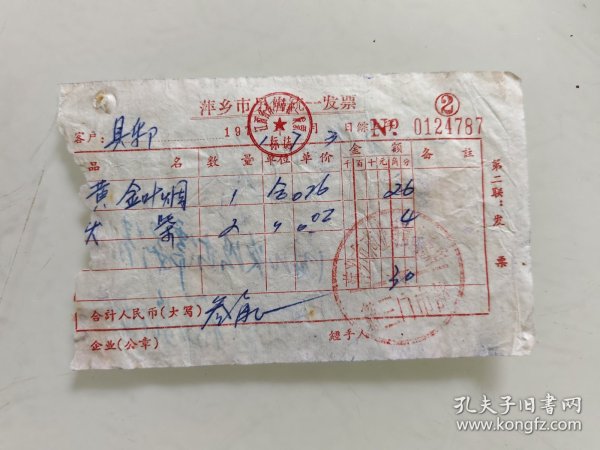 萍乡市 统一发票
②
客户：县邦 19 7 月 3 日 №. 0124787
品名 数量 单位 单价 金额 千百十元角分 备註
黄金叶烟 1 仝 0.26 26
火柴 2 〃 0.02 4
30
合計人民币(大写) 叁角
企业(公章) 經手人
第二联：发票
孔夫子旧书网
www.kongfz.com